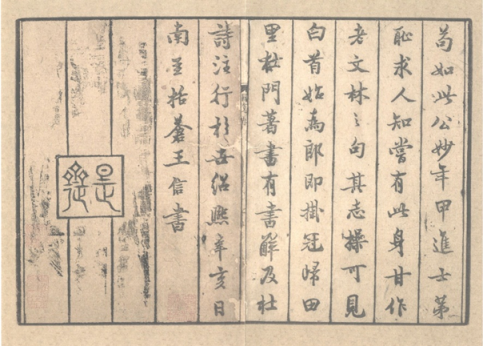 苟如此公妙年甲進士第
恥求人知嘗有此身甘作
老文林之句其志操可見
白首始為郎即掛冠歸田
里杜門著書有書解及杜
詩注行於世紹熙辛亥日
南至括蒼王信書
是齋